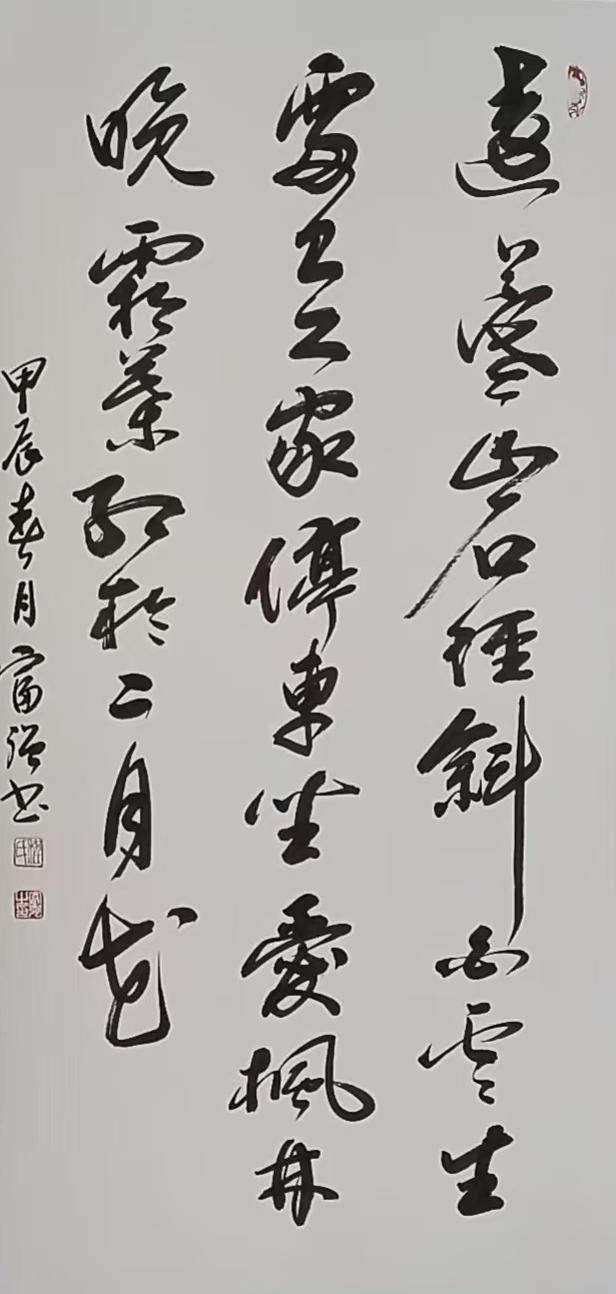 遠上寒山石徑斜白雲生
處有人家停車坐愛楓林
晚霜葉紅於二月花
甲辰春月富强书